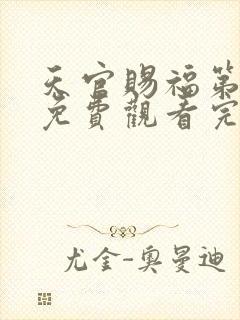 天官賜福第
免費觀看完
尤金-奧曼迪